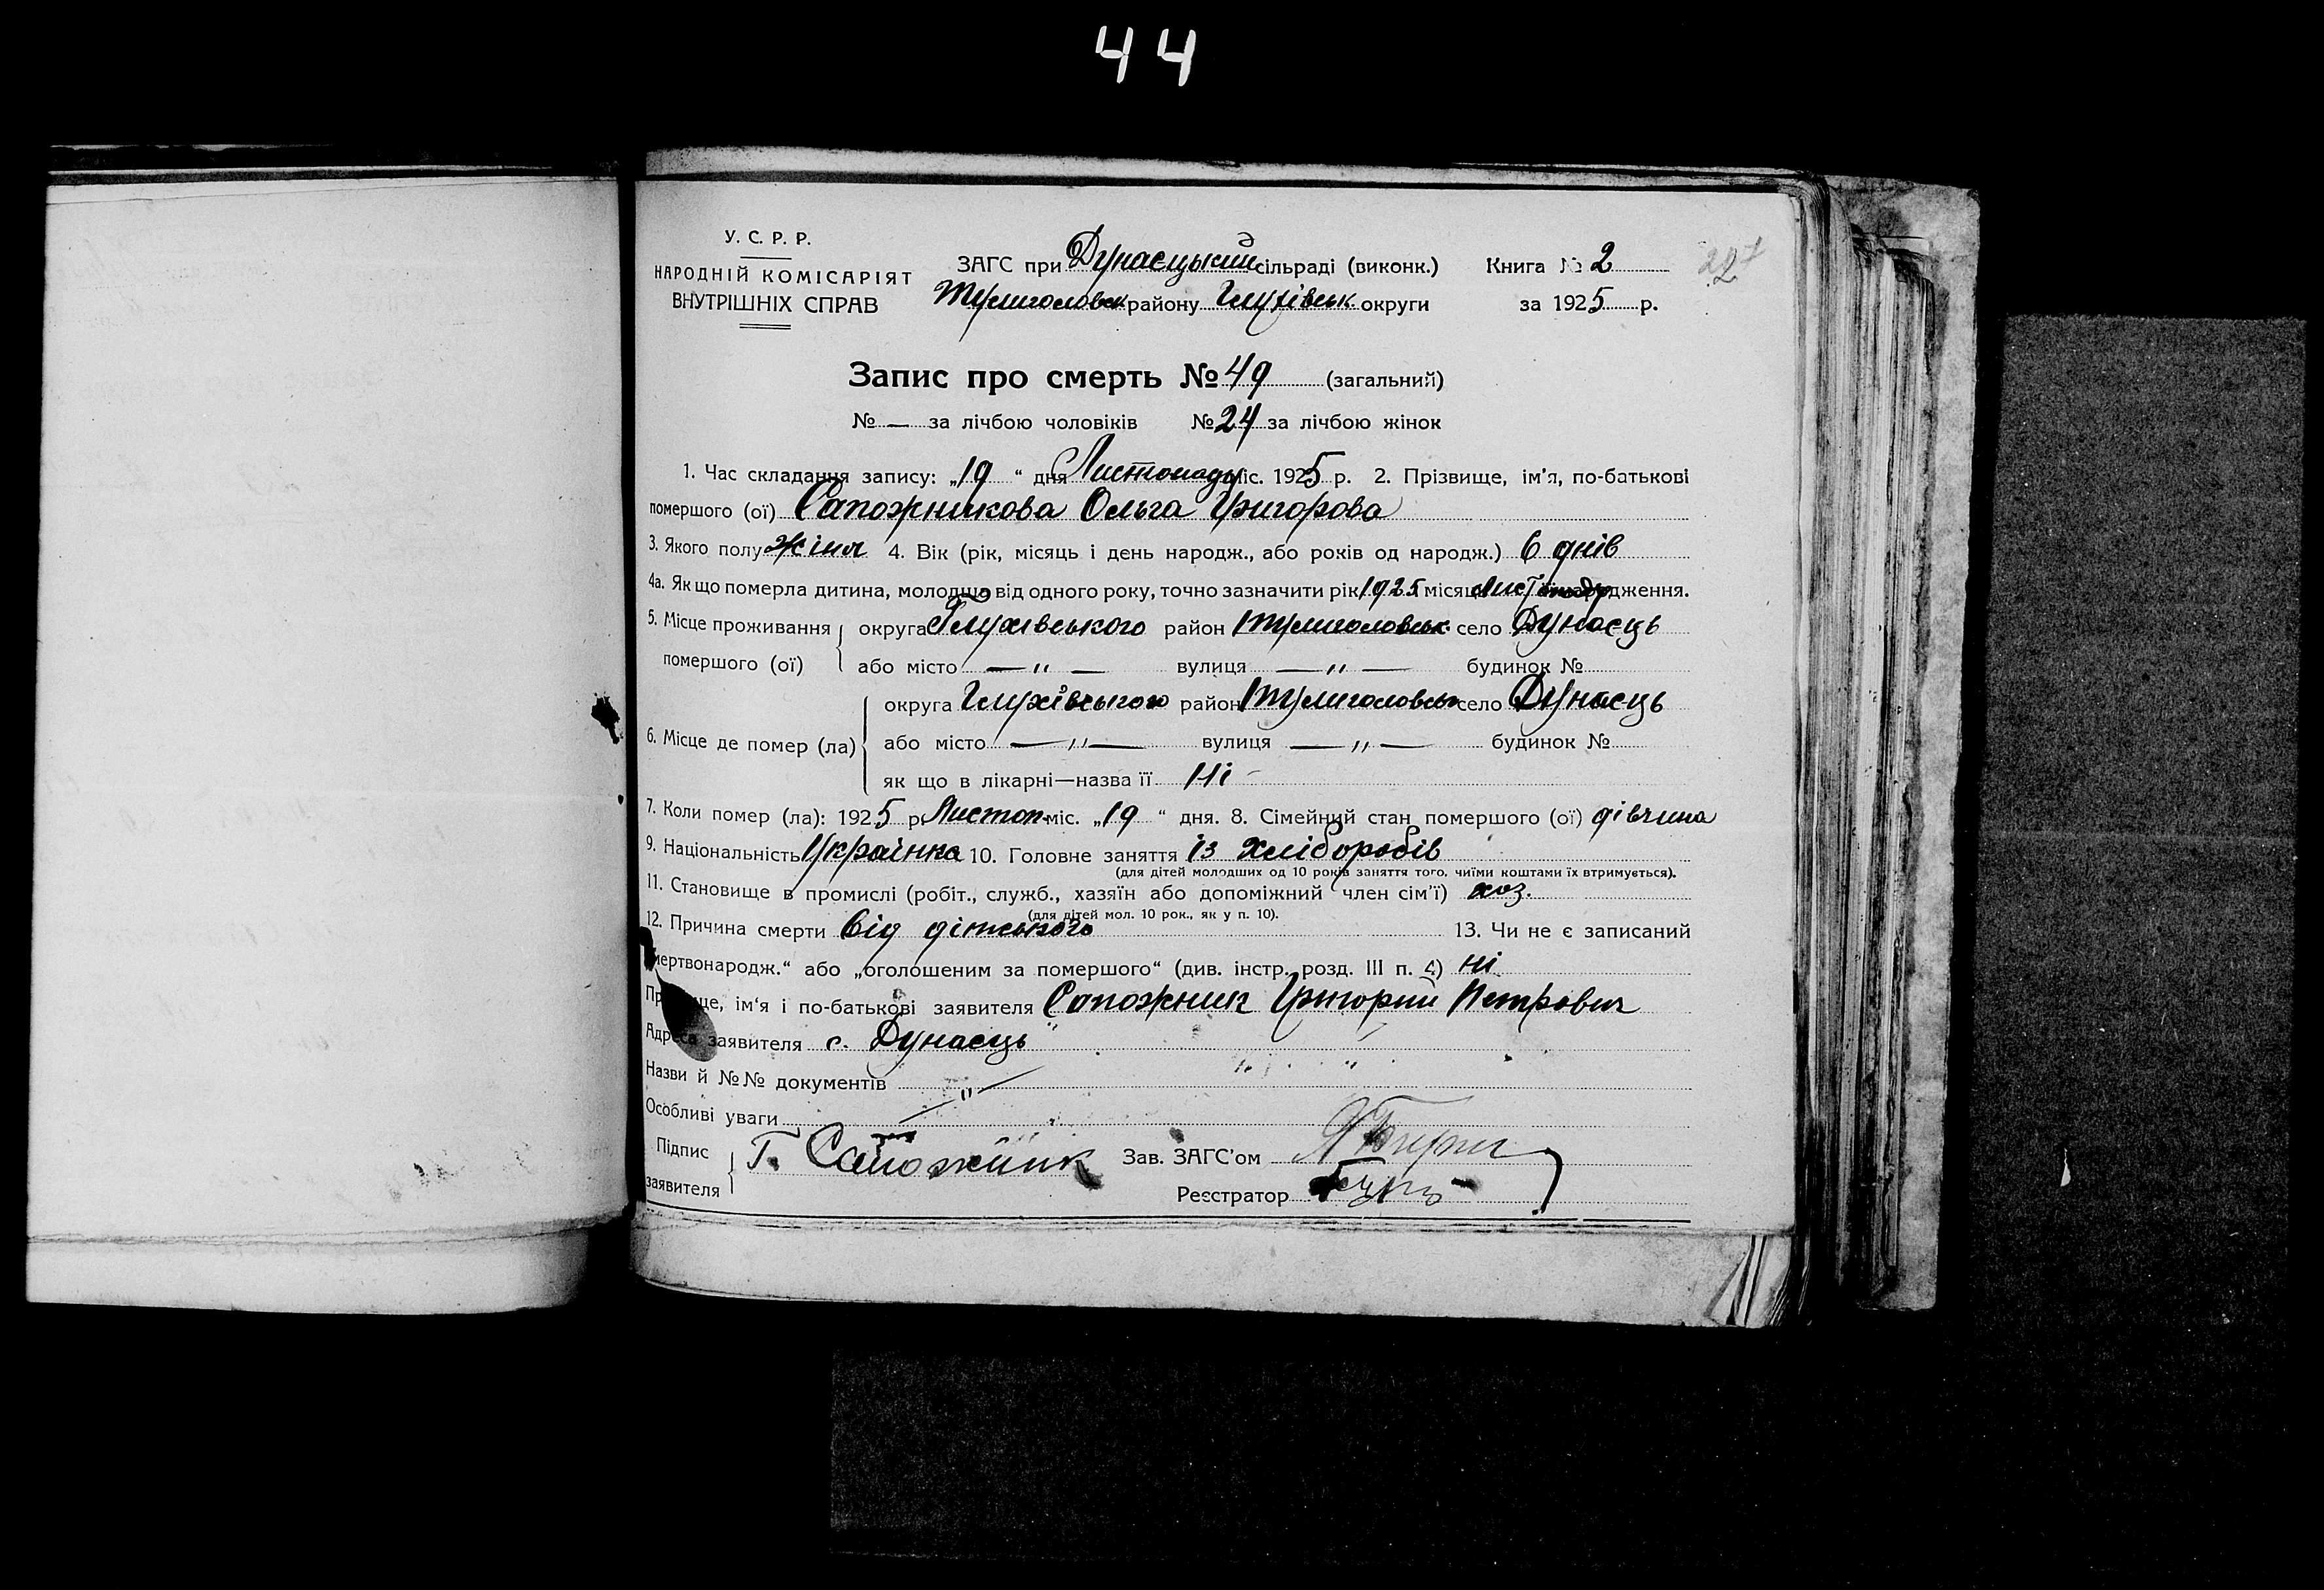 44
У. С. Р. Р.
НАРОДНІЙ КОМІСАРІЯТ
ВНУТРІШНІХ СПРАВ
ЗАГС при Дунаєцький сільраді (виконк.) Книга № 2
Тулиголовськ району Глухівськ округи за 1925 р.
227
Запис про смерть № 49 (загальний)
№ — за лічбою чоловіків № 24 за лічбою жінок
1. Час складання запису: „19“ дня Листопаду міс. 1925 р. 2. Прізвище, ім'я, по-батькові
помершого (ої) Сапожникова Ольга Григорова
3. Якого полу жіноч 4. Вік (рік, місяць і день народж., або років од народж.) 6 днів
4а. Як що померла дитина, молодша від одного року, точно зазначити рік 1925 місяць Листопаду народження.
5. Місце проживання помершого (ої) округа Глухівського район Тулиголовськ село Дунаєць
або місто —„— вулиця —„— будинок №
6. Місце де помер (ла) округа Глухівського район Тулиголовськ село Дунаєць
або місто —„— вулиця —„— будинок №
як що в лікарні—назва її Ні
7. Коли помер (ла): 1925 р. Листоп. міс. „19“ дня. 8. Сімейний стан помершого (ої) дівчина
9. Національність Українка 10. Головне заняття із хліборобів
(для дітей молодших од 10 років заняття того, чиїми коштами їх втримується).
11. Становище в промислі (робіт., служб., хазяїн або допоміжний член сім'ї) хоз.
(для дітей мол. 10 рок., як у п. 10).
12. Причина смерти від дітського 13. Чи не є записаний
мертвонародж.“ або „оголошеним за помершого“ (див. інстр. розд. III п. 4) ні
Прізвище, ім'я і по-батькові заявителя Сапожник Григорий Петрович
Адреса заявителя с. Дунаєць
Назви й №№ документів —„—
Особливі уваги
Підпис заявителя Г. Сапожник Зав. ЗАГС'ом
Реєстратор